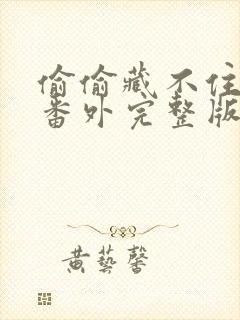 偷偷藏不住
番外完整版
黄藝馨